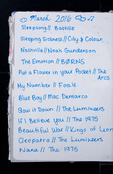 March 2016
Sleepsong // Bastille
Sleeping Sickness // City & Colour
Nashville // Noah Gundersen
The Emotion // BØRNS
Put a Flower in your Pocket // The Arcs
My Number // Foals
Blue Boy // Mac Demarco
Slow it Down // The Lumineers
If I Believe You // The 1975
Beautiful War // Kings of Leon
Cleopatra // The Lumineers
Nana // The 1975